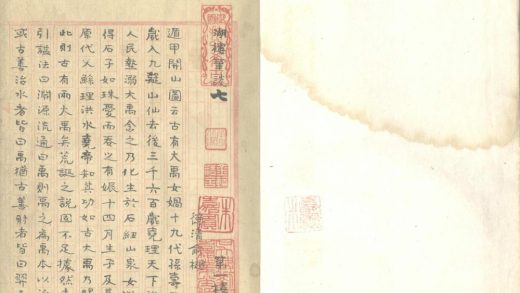 湖樓筆談七
第一樓
德清俞樾
遁甲開山圖云古有大禹女媧十九代孫壽
歲入九嶷山仙去後三千六百歲堯理天下
人民墊溺大禹念之乃化生於石紐山泉女
得石子如珠愛而吞之有娠十四月生子及其
原代父鯀理洪水堯帝知其功如古大禹乃
此則古有兩大禹矣荒誕之說固不足據然
引謚法曰淵源流通曰禹則禹之為禹本以
或古善治水者皆曰禹猶古善射者皆曰羿